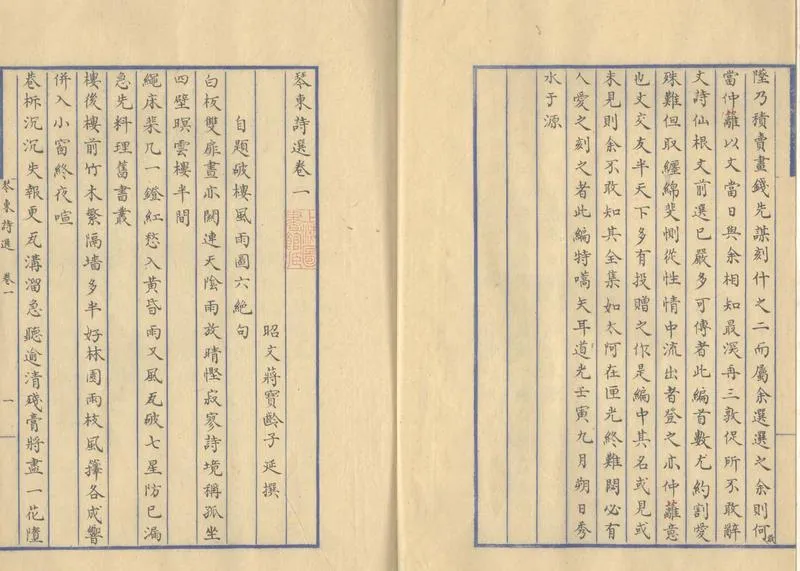 陞乃積賣畫錢先謀刻什之二而屬余選選之余則何敢
當仲蘺以文當日與余相知最深再三敦促所不敢辭
丈詩仙根丈前選已嚴多可傳者此編首數尤約割愛
殊難但取纏綿斐惻從性情中流出者登之亦仲蘺意
也丈交友半天下多有投贈之作是編中其名或見或
未見則余不敢知其全集如太阿在匣光終難閟必有
人愛之刻之者此編特嚆矢耳道光壬寅九月朔日秀
水于源
琴東詩選卷一
昭文蔣寶齡子延撰
自題破樓風雨圖六絕句
白板雙扉晝亦關連天陰雨故晴慳寂寥詩境稱孤坐
四壁暝雲樓半間
繩床棐几一鐙紅愁入黃昏雨又風瓦破七星防已漏
急先料理舊書叢
樓後樓前竹木繁隔墻多半好林園雨枝風籜各成響
併入小窗終夜喧
巷柝沉沉失報更瓦溝溜急聽逾清殘膏將盡一花墮
琴東詩選 卷一
一